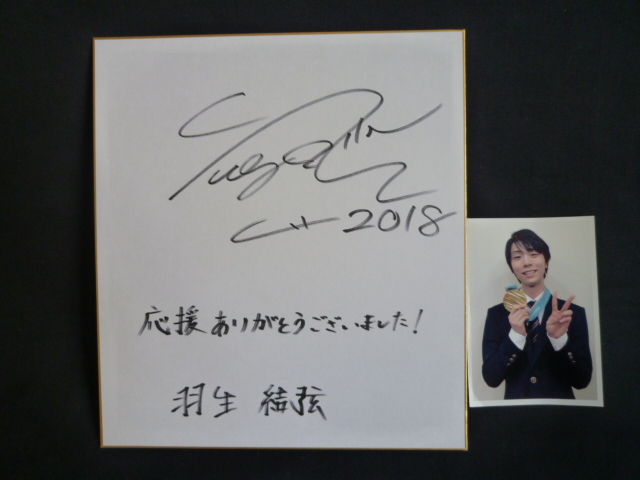 2018
応援ありがとうございました!
羽生 結弦